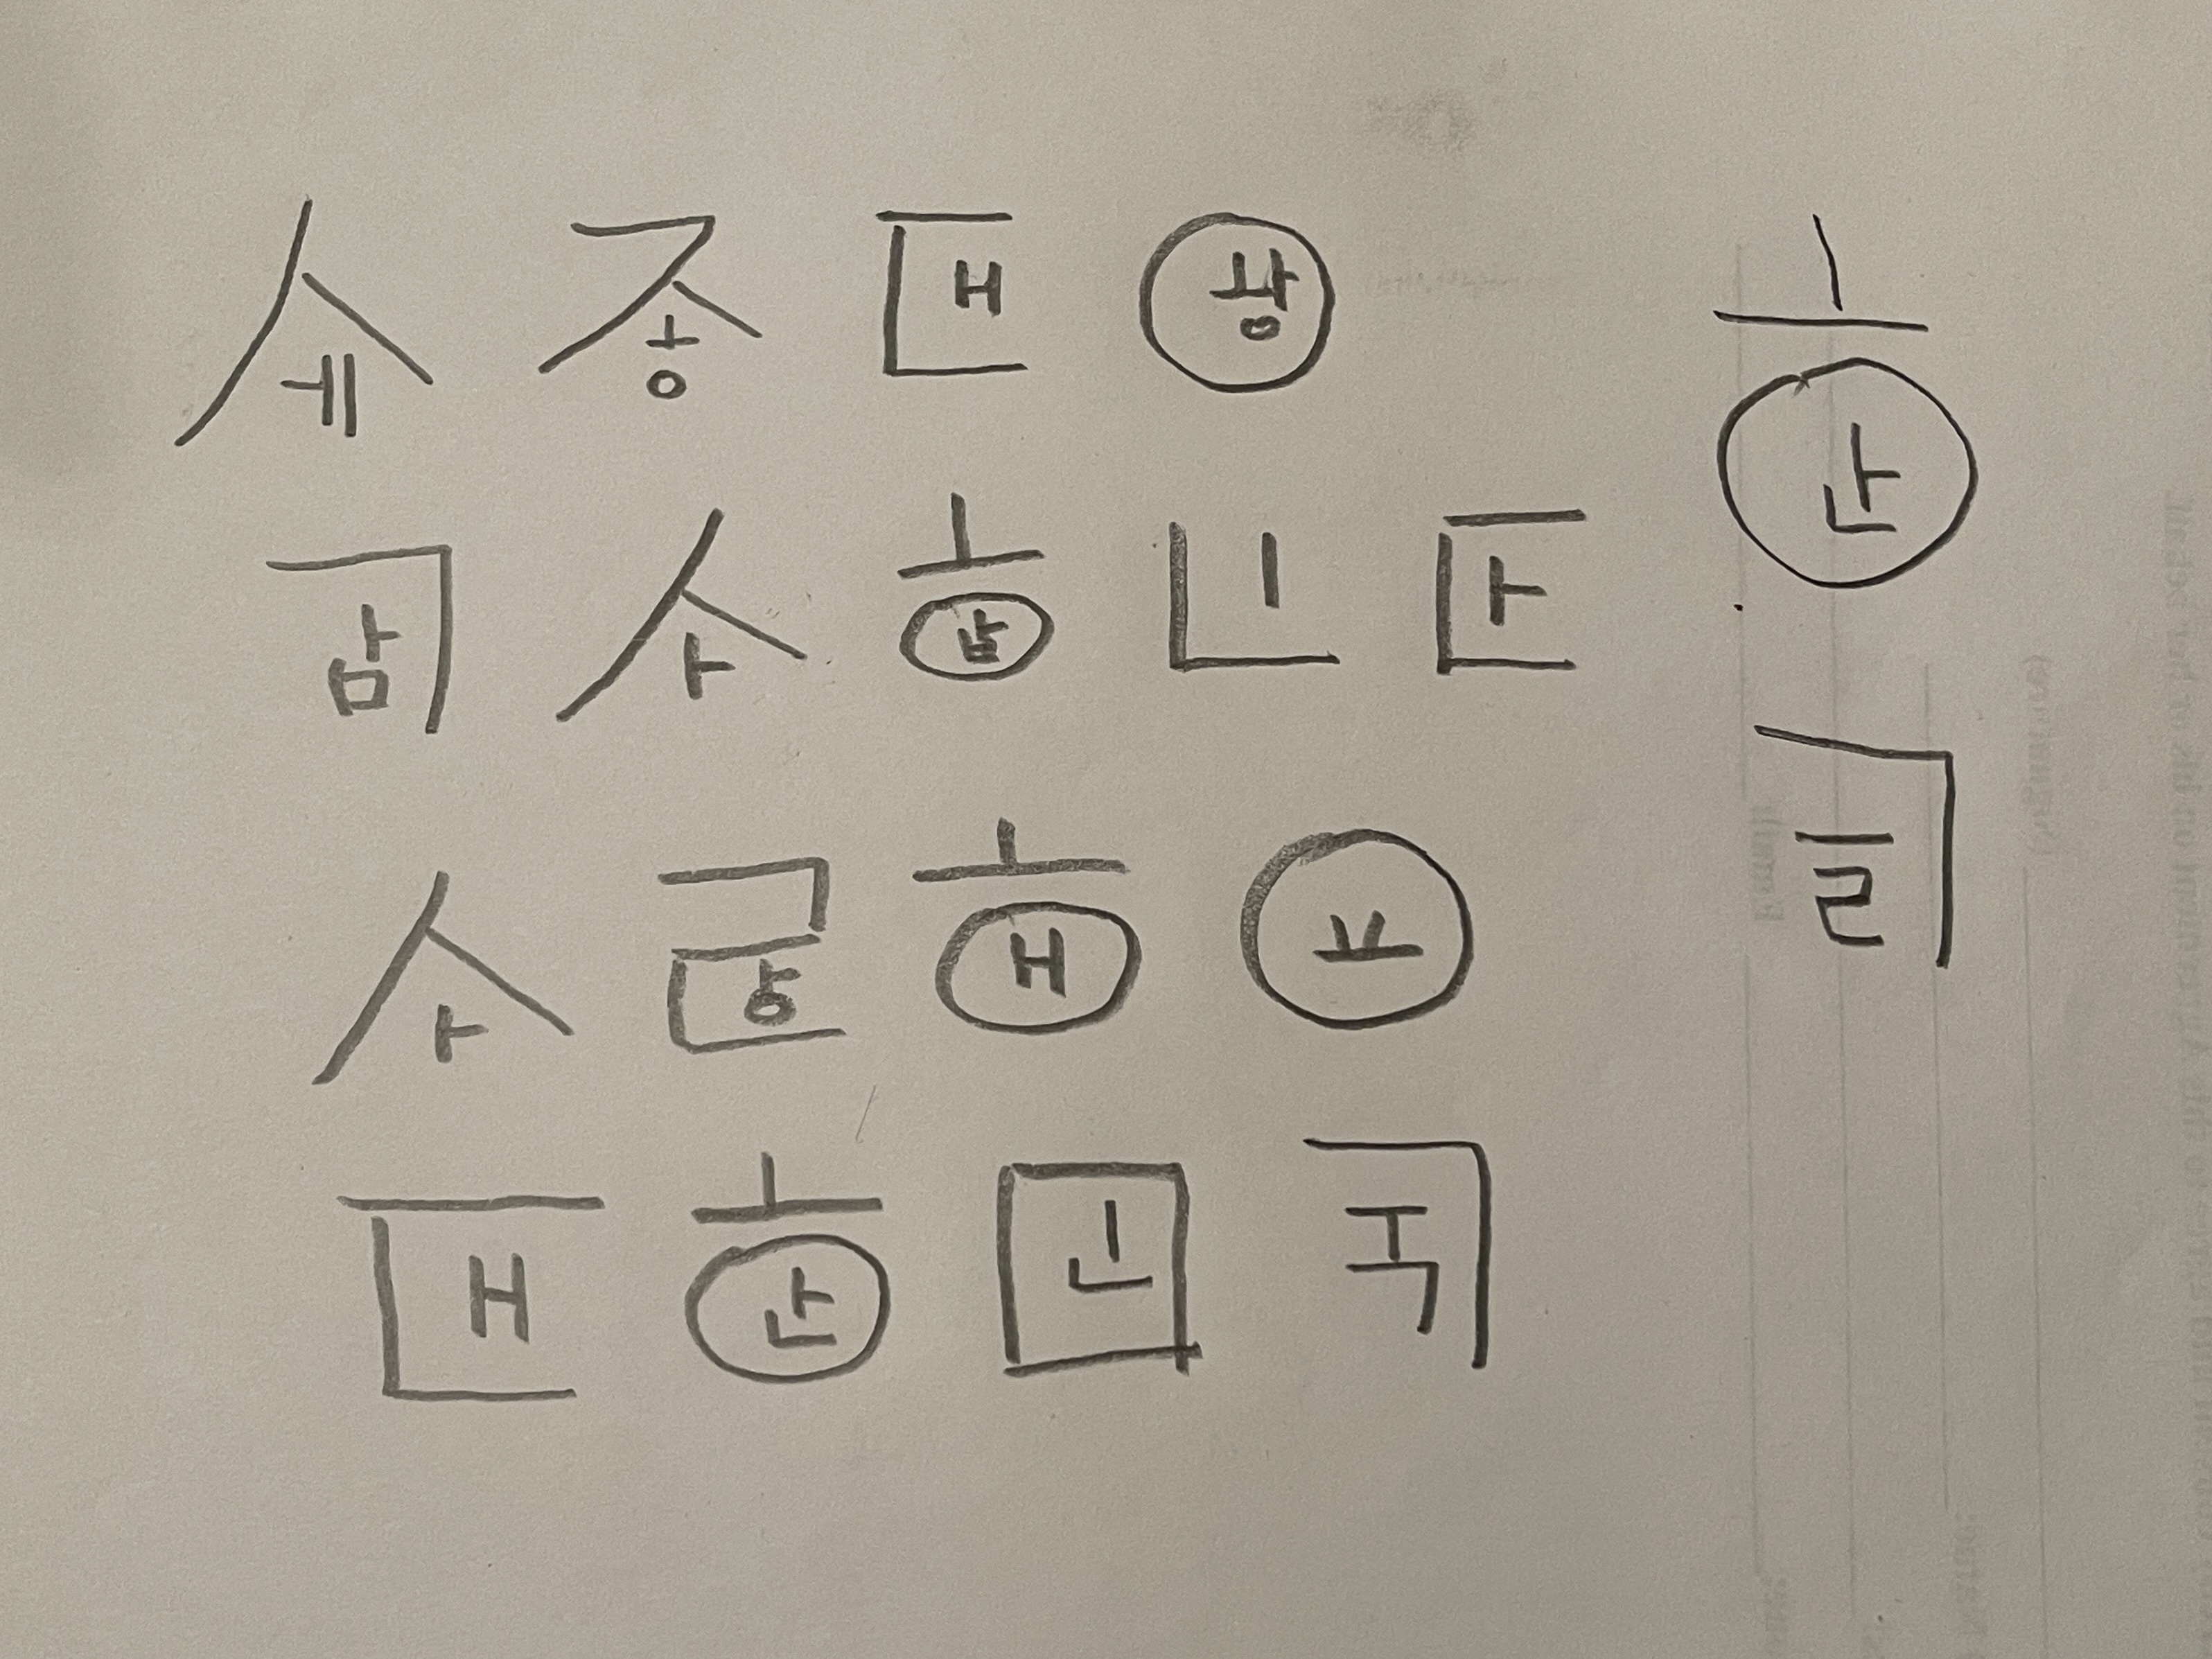 세종대왕
감사합니다
사랑해요
대한민국
한글